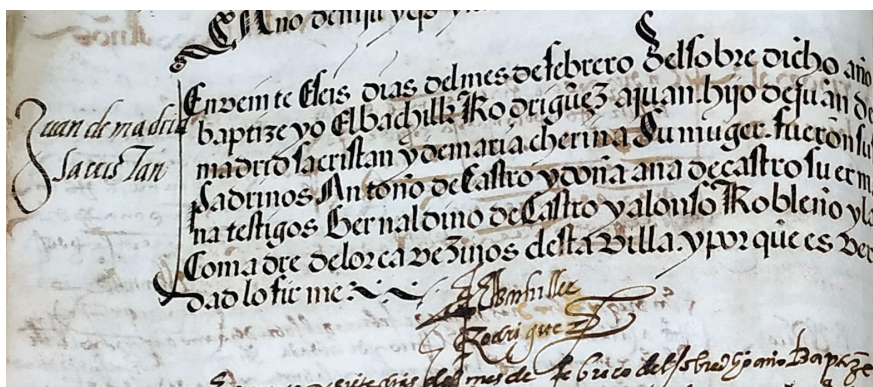 Juan de madrid
Sacristan
En veinte E seis dias del mes de febrero del sobre dicho año
baptize yo El bachiller Rodriguez a juan. hijo de juan de
madrid sacristan y de maria cherina Su muger. fueron sus
padrinos Antonio de Castro y doña ana de castro su erm
na testigos Bernaldino de Castro y alonso Robleño y la
Comadre de lorca vezinos desta villa. y por que es ver
dad lo firme
El Bachiller
Rodriguez
del mes de febrero del sobredho año Baptize